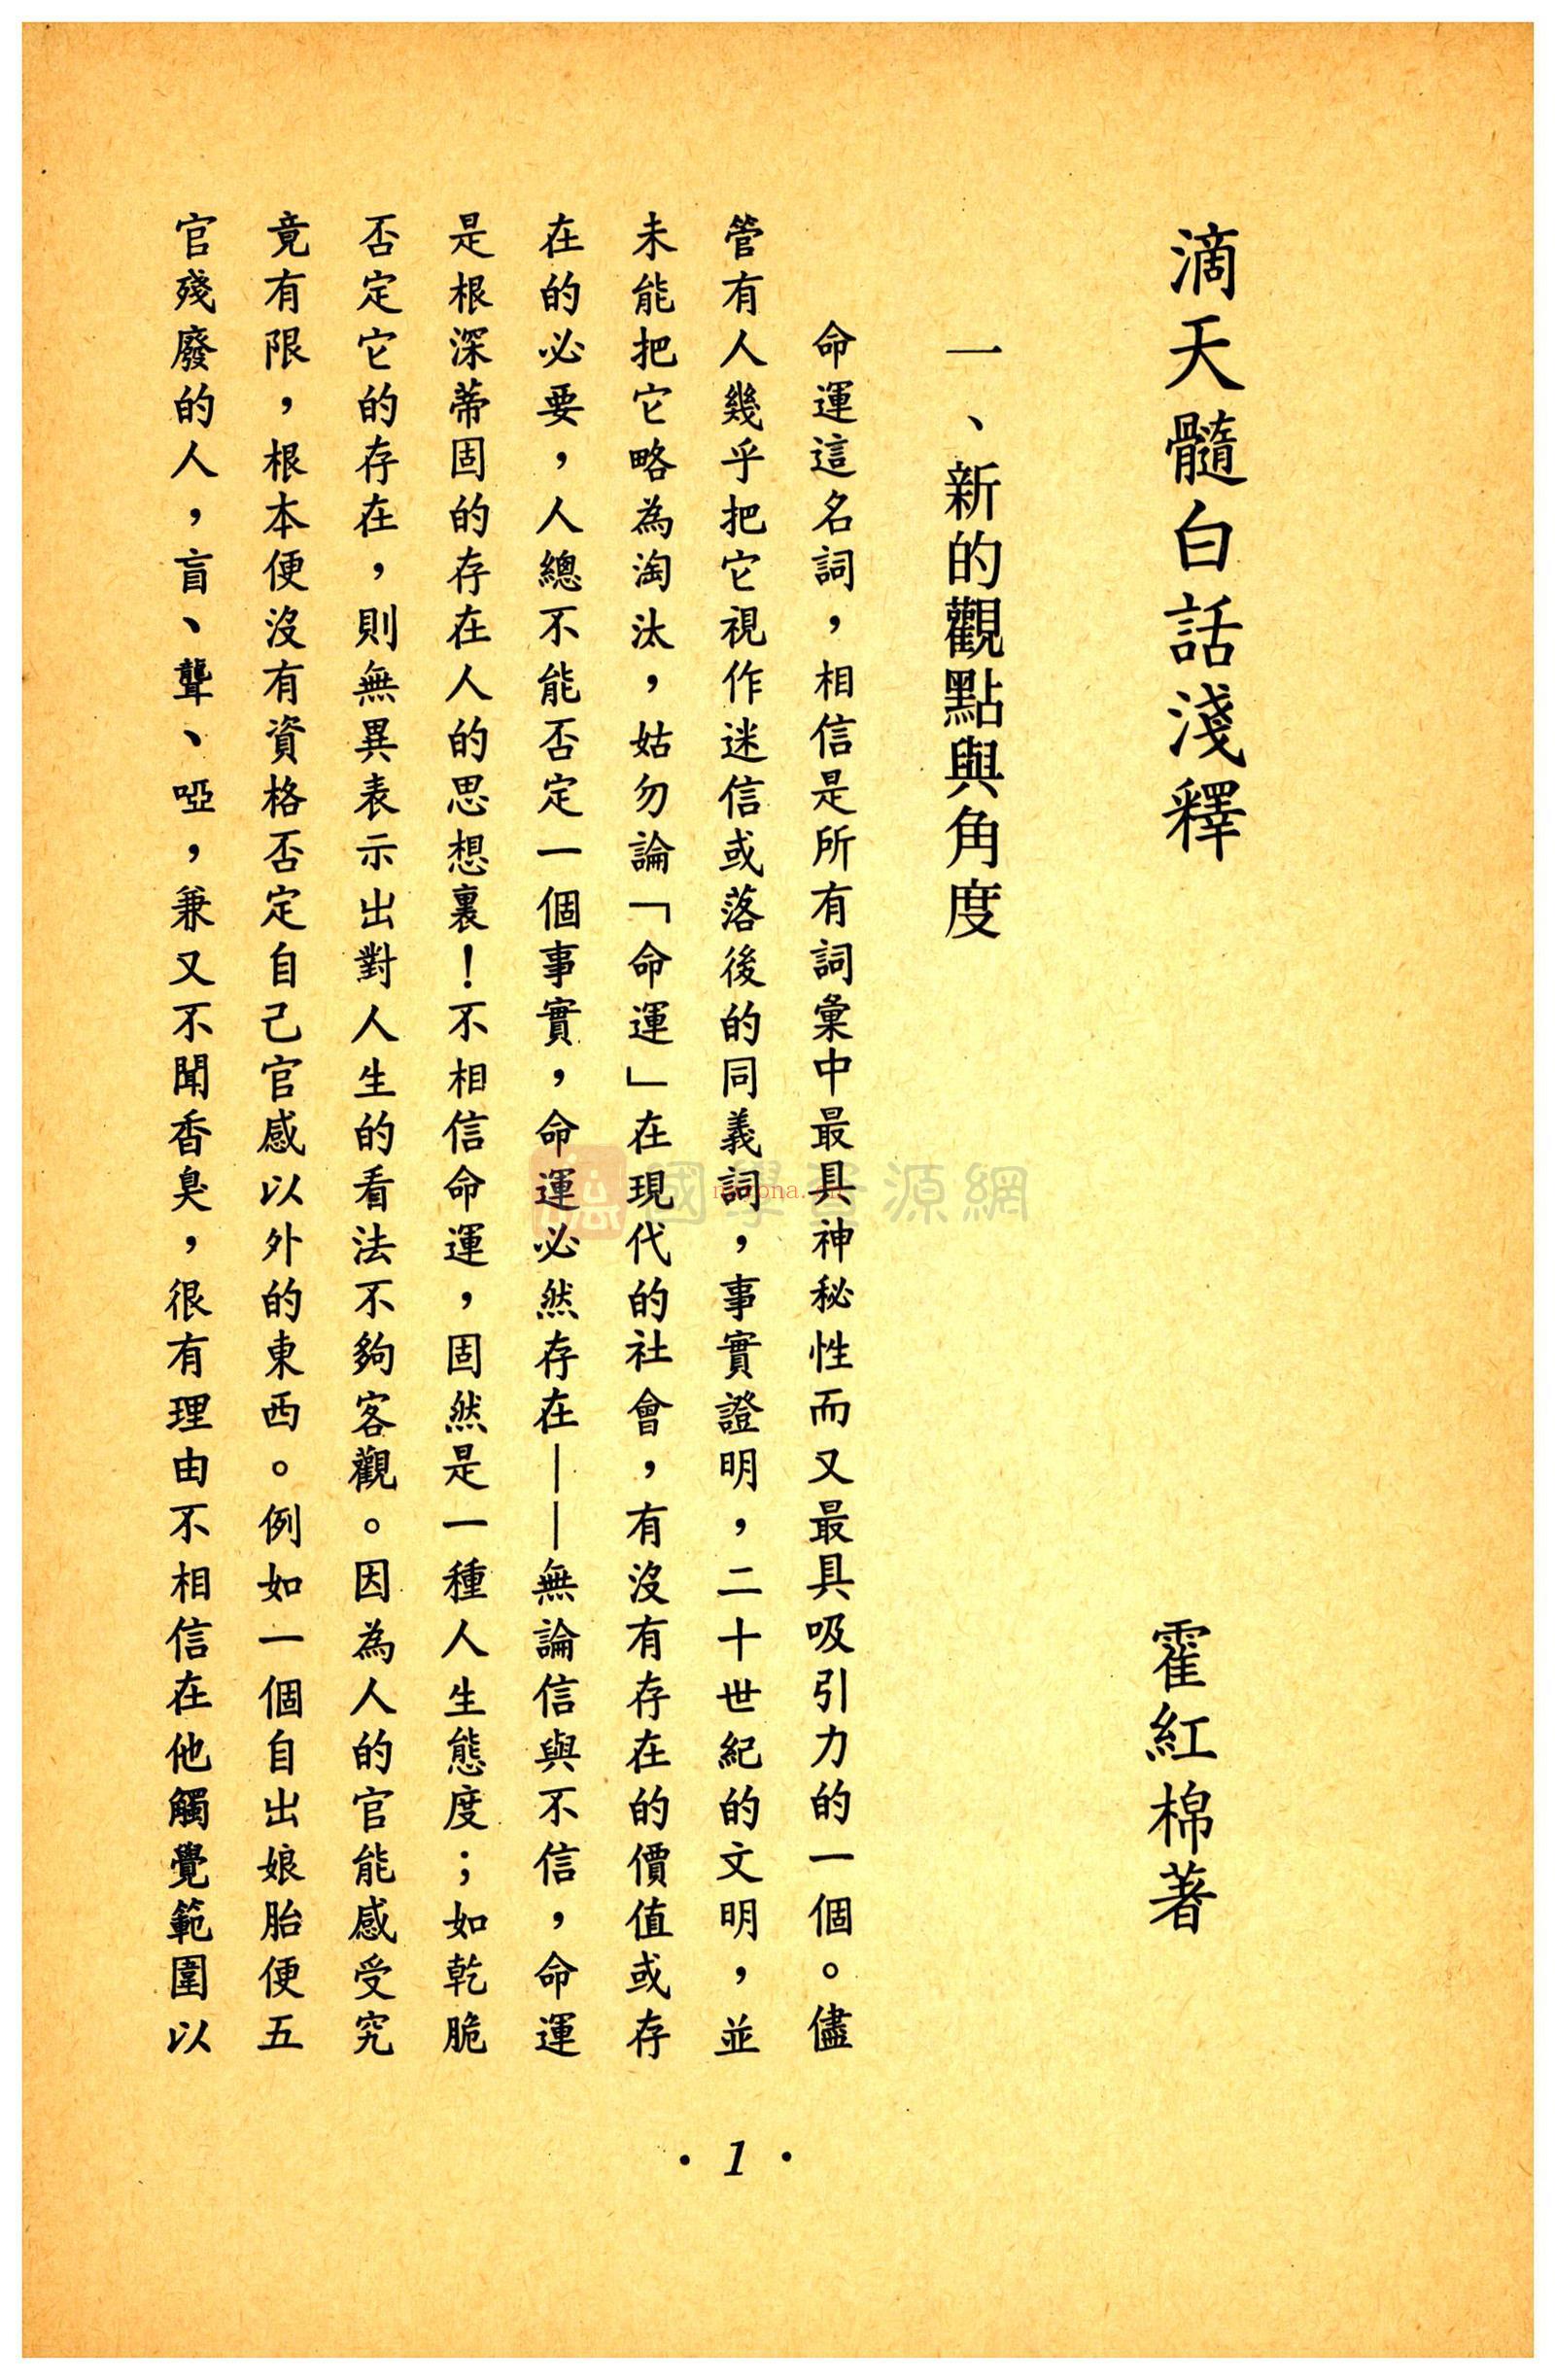 滴天髓白話淺釋
霍紅棉著
一、新的觀點與角度
命運這名詞，相信是所有詞彙中最具神秘性而又最具吸引力的一個。儘
管有人幾乎把它視作迷信或落後的同義詞，事實證明，二十世紀的文明，並
未能把它略為淘汰，姑勿論「命運」在現代的社會，有沒有存在的價值或存
在的必要，人總不能否定一個事實，命運必然存在——無論信與不信，命運
是根深蒂固的存在人的思想裏！不相信命運，固然是一種人生態度；如乾脆
否定它的存在，則無異表示出對人生的看法不夠客觀。因為人的官能感受究
竟有限，根本便沒有資格否定自己官感以外的東西。例如一個自出娘胎便五
官殘廢的人，盲、聾、啞，兼又不聞香臭，很有理由不相信在他觸覺範圍以
國學資源網
·1·